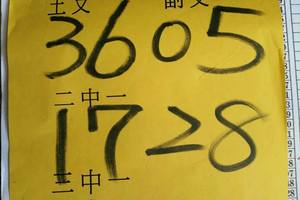 主文 副文
3605
二中一
1728
三中一